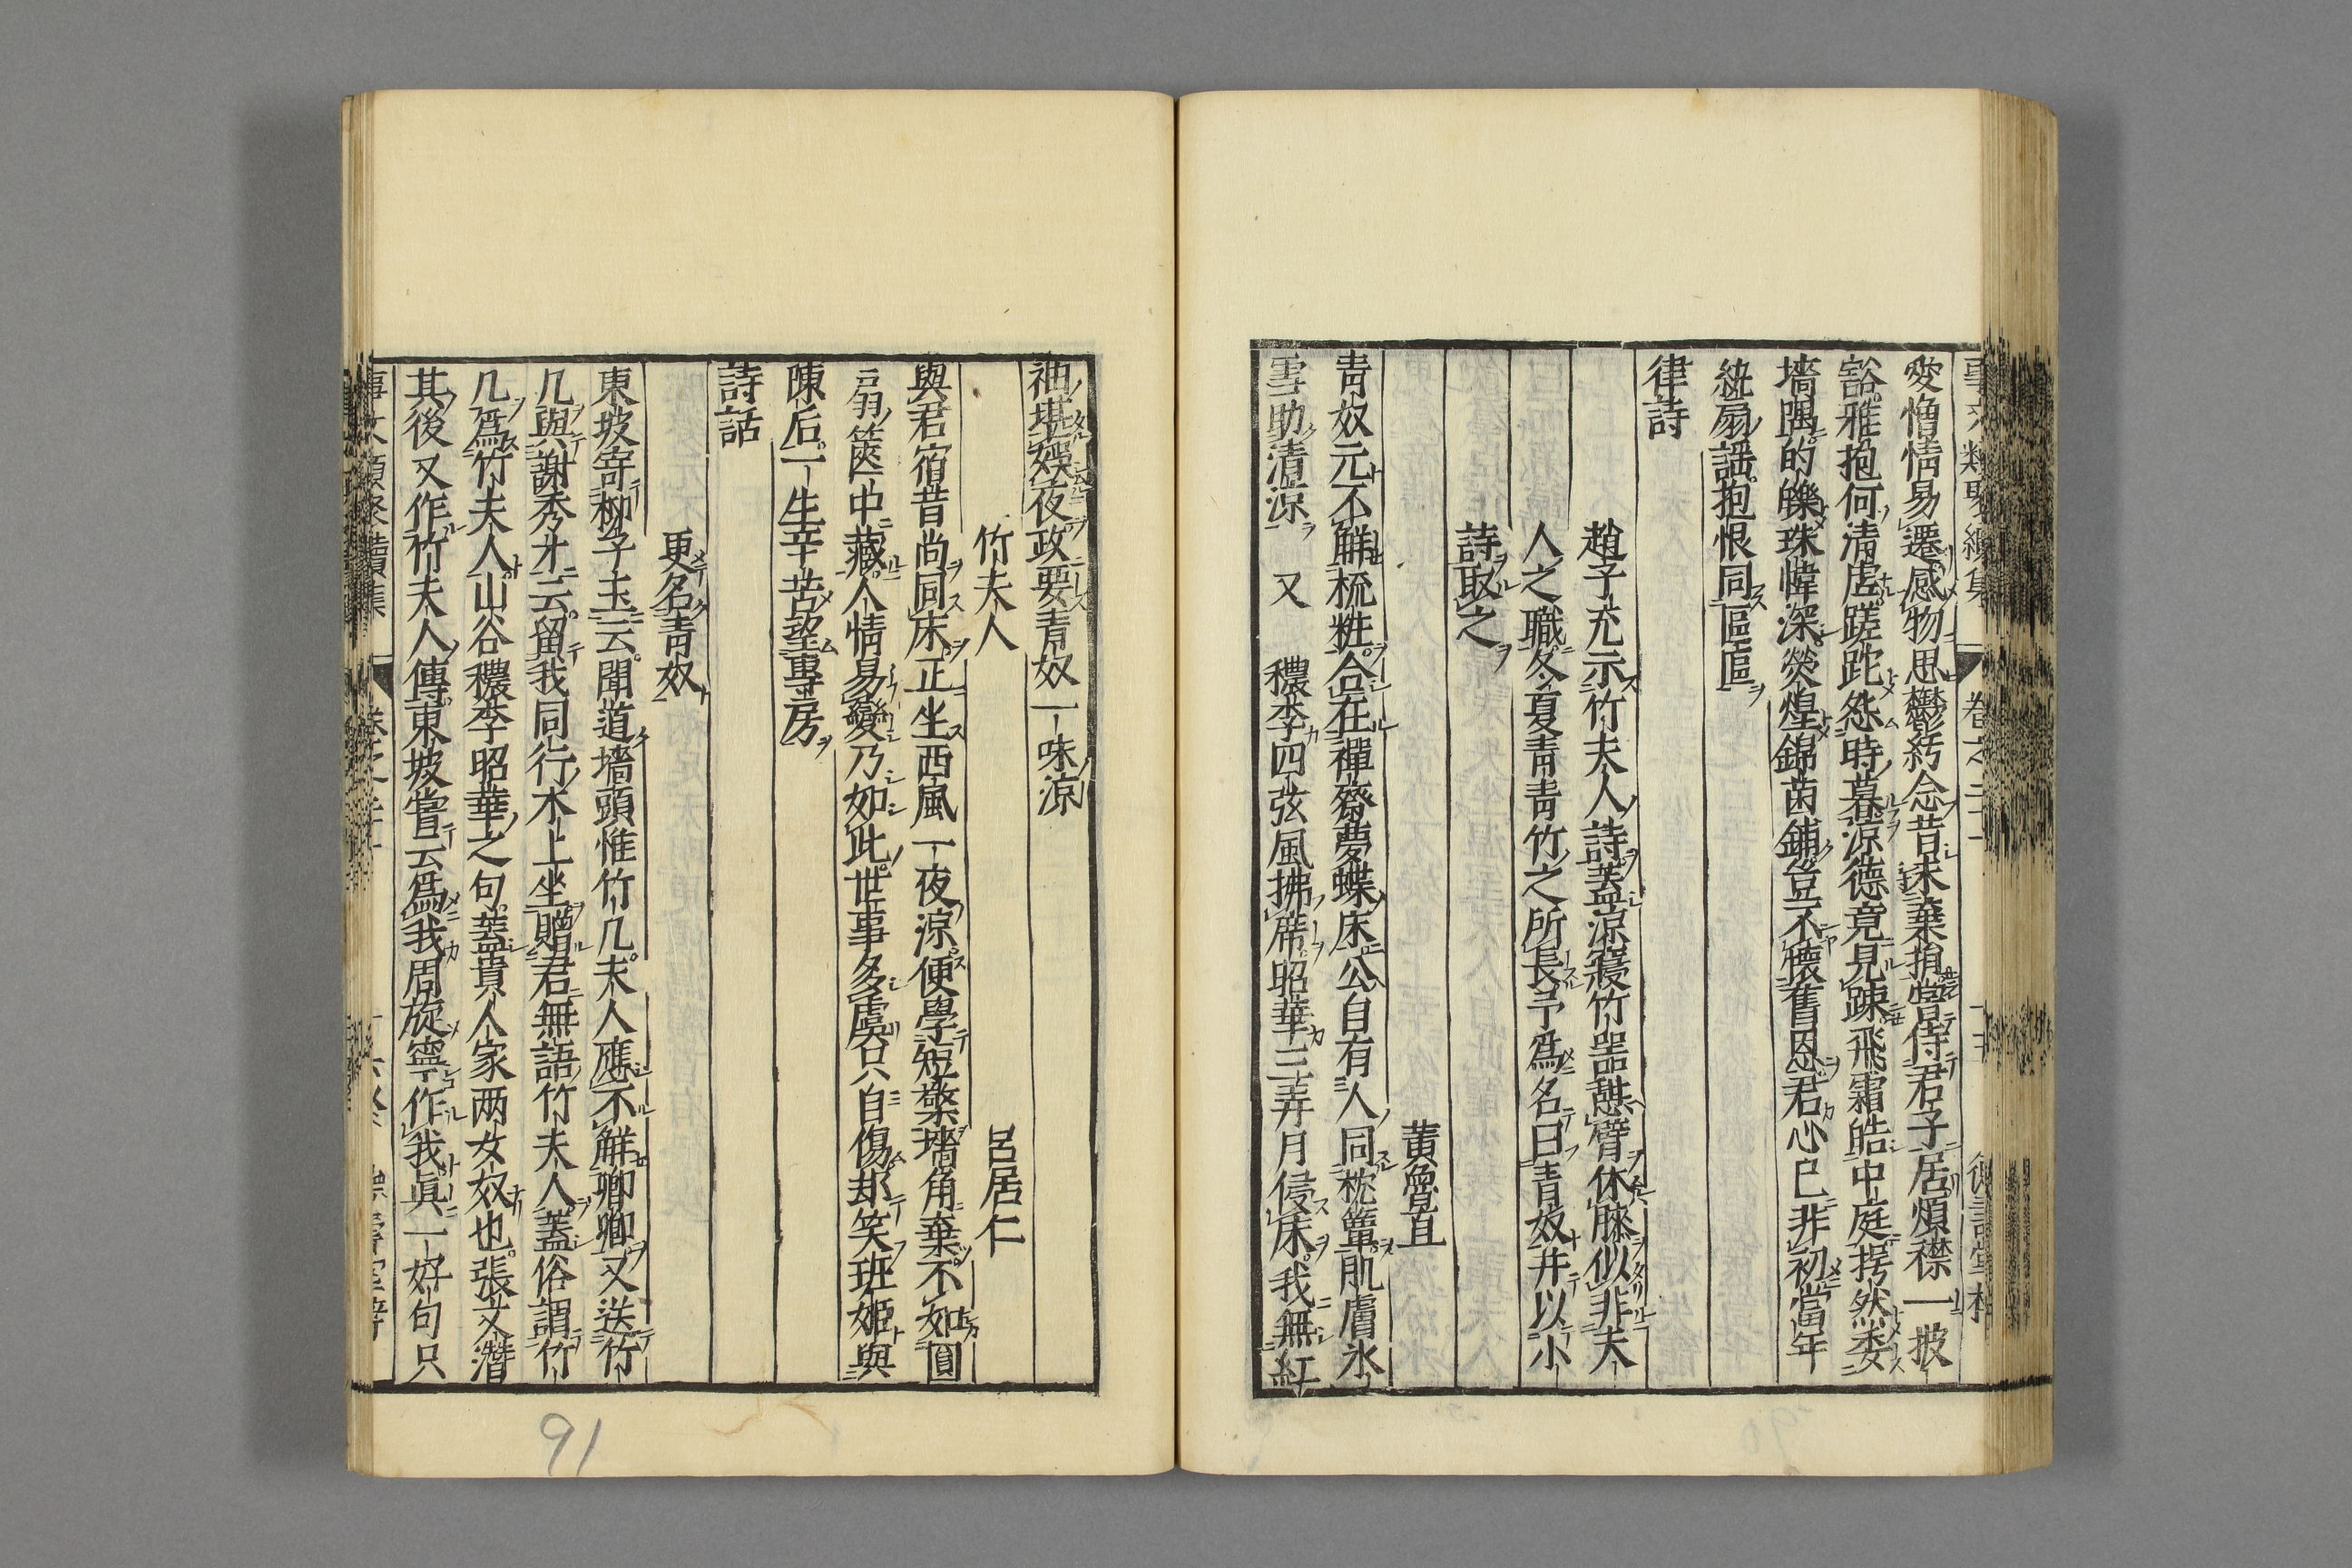 愛憎情易遷感物思欝紆念昔未棄捐嘗侍君子居煩襟一披
豁雅抱何清虗蹉跎怨時暮涼德竟見踈飛霜皓中庭拐然委
墻隅的皪珠幃深熒煌錦茵鋪豈不懷舊恩君心已非初當年
紈扇謡抱恨同區區
律詩
趙子充示竹夫人詩蓋涼寢竹噐憇臂休膝似非夫
人之職冬夏青青竹之所長予爲名曰青奴并以小
詩取之
黄魯直
青奴元不解梳粧合在禪齋夢蝶床公自有人同枕簟肌膚氷
雪助清涼　又　穠李四弦風拂席昭華三弄月侵床我無紅
袖堪娱夜政要青奴一味涼
竹夫人　呂居仁
與君宿昔尚同床正坐西風一夜涼便學短檠墻角棄不如團
扇篋中藏人情易變乃如此世事多虞只自傷却笑班姬與
陳后一生辛苦望專房
詩話
更名青奴
東坡寄柳子玉云聞道墻頭惟竹几夫人應不解卿卿又送竹
几與謝秀才云留我同行木上坐贈君無語竹夫人蓋俗謂竹
几爲竹夫人山谷穠李昭華之句蓋貴人家两女奴也張文潛
其後又作竹夫人傳東坡嘗云爲我周旋寧作我眞一好句只
91